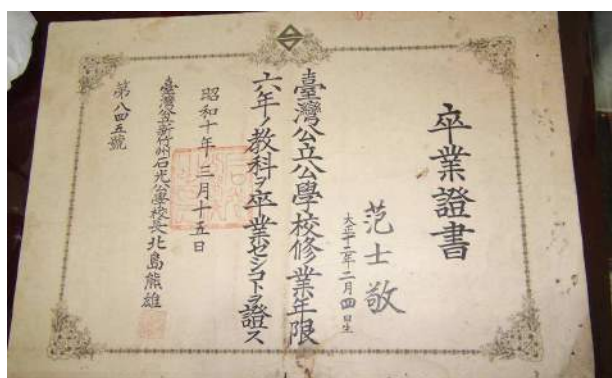 卒業證書
范士敬
大正十二年二月四日生
臺灣公立公學校修業年限
六年ノ教科ヲ卒業セシコトヲ證ス
昭和十年三月十五日
臺灣公立新竹州石光公學校長北島熊雄
第八四五號